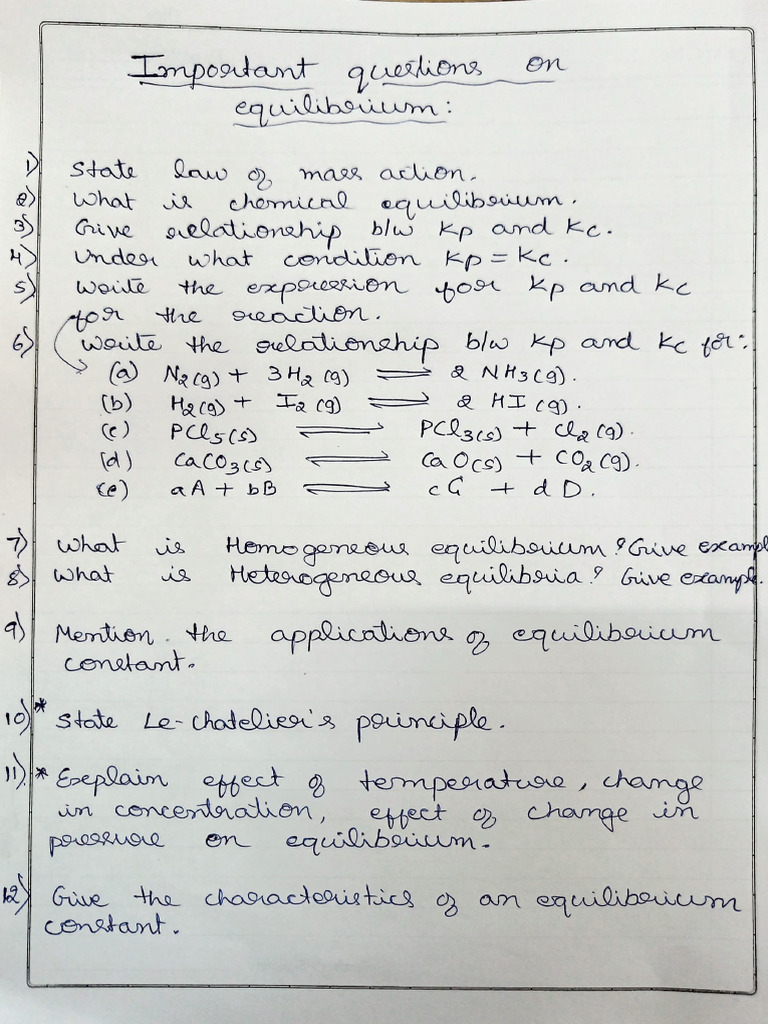 Important questions on
equilibrium:
1) State law of mass action.
2) What is chemical equilibrium.
3) Give relationship b/w Kp and Kc.
4) Under what condition Kp = Kc.
5) Write the expression for Kp and Kc
for the reaction.
6) Write the relationship b/w Kp and Kc for:
(a) N2(g) + 3H2(g) ⇌ 2 NH3(g).
(b) H2(g) + I2(g) ⇌ 2 HI(g).
(c) PCl5(s) ⇌ PCl3(s) + Cl2(g).
(d) CaCO3(s) ⇌ CaO(s) + CO2(g).
(e) aA + bB ⇌ cC + dD.
7) What is Homogeneous equilibrium? Give exampl
8) What is Heterogeneous equilibria? Give example.
9) Mention the applications of equilibrium
constant.
10) * State Le-chatelier's principle.
11) * Explain effect of temperature, change
in concentration, effect of change in
pressure on equilibrium.
12) Give the characteristics of an equilibrium
constant.